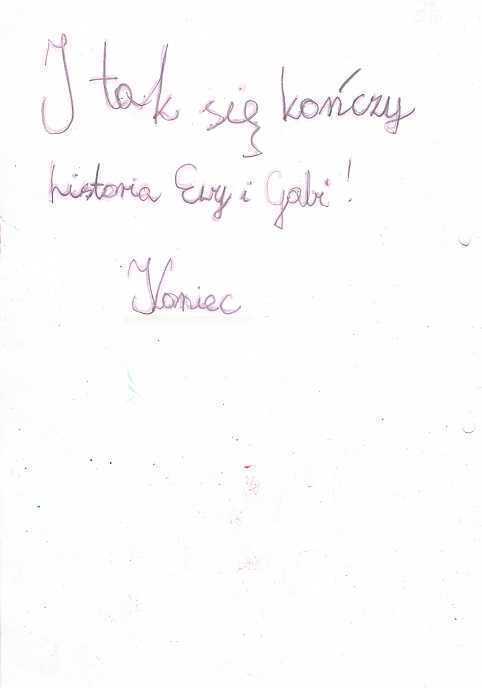 I tak się kończy
historia Ewy i Gabi!
Koniec